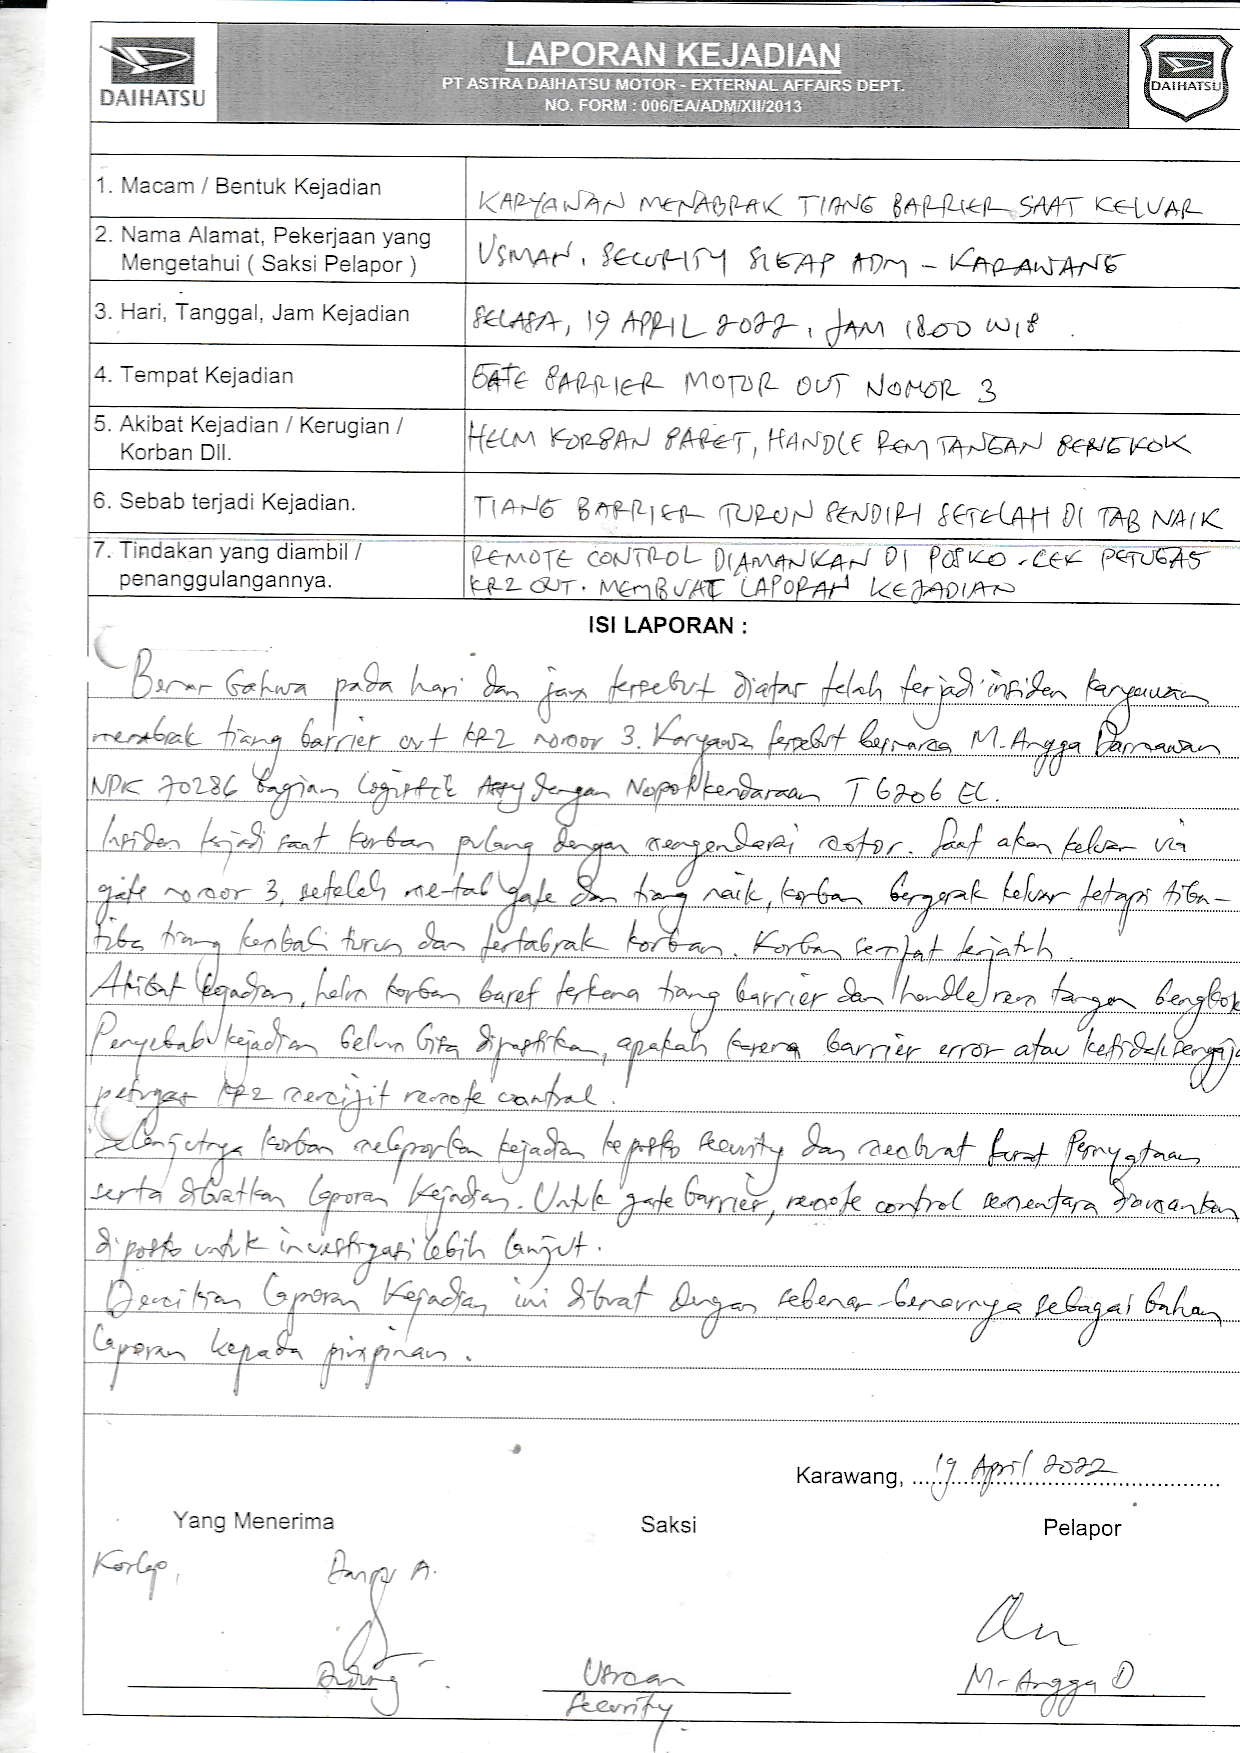 DAIHATSU
LAPORAN KEJADIAN
PT ASTRA DAIHATSU MOTOR - EXTERNAL AFFAIRS DEPT.
NO. FORM : 006/EA/ADM/XII/2013
DAIHATSU
1. Macam / Bentuk Kejadian
KARYAWAN MENABRAK TIANG BARRIER SAAT KELUAR
2. Nama Alamat, Pekerjaan yang
Mengetahui ( Saksi Pelapor )
USMAN, SECURITY SIGAP ADM - KARAWANG
3. Hari, Tanggal, Jam Kejadian
SELASA, 19 APRIL 2022, JAM 1800 WIB
4. Tempat Kejadian
GATE BARRIER MOTOR OUT NOMOR 3
5. Akibat Kejadian / Kerugian /
Korban Dll.
HELM KORBAN BARET, HANDLE REM TANGAN BENGKOK
6. Sebab terjadi Kejadian.
TIANG BARRIER TURUN SENDIRI SETELAH DI TAB NAIK
7. Tindakan yang diambil /
penanggulangannya.
REMOTE CONTROL DIAMANKAN DI POSKO. CEK PETUGAS
KR2 OUT. MEMBUAT LAPORAN KEJADIAN
ISI LAPORAN :
Benar bahwa pada hari dan jam tersebut diatas telah terjadi insiden karyawan
menabrak tiang barrier out KR2 nomor 3. Karyawan tersebut bernama M. Angga Darmawan
NPK 70286 bagian Logistik Assy dengan Nopol kendaraan T 6206 EL.
Insiden terjadi saat korban pulang dengan mengendarai motor. Saat akan keluar via
gate nomor 3, setelah me-tab gate dan tiang naik, korban bergerak keluar tetapi tiba-
tiba tiang kembali turun dan tertabrak korban. Korban sempat terjatuh.
Akibat kejadian, helm korban baret terkena tiang barrier dan handle rem tangan bengkok
Penyebab kejadian belum bisa dipastikan, apakah karena barrier error atau
petugas KR2 memijit remote control.
Selanjutnya korban melaporkan kejadian ke posko security dan membuat surat Pernyataan
serta dibuatkan Laporan Kejadian. Untuk gate barrier, remote control sementara diamankan
di posko untuk investigasi lebih lanjut.
Demikian Laporan Kejadian ini dibuat dengan sebenar-benarnya sebagai bahan
laporan kepada pimpinan.
Karawang, 19 April 2022
Yang Menerima
Saksi
Pelapor
Usman
M. Angga D
Security